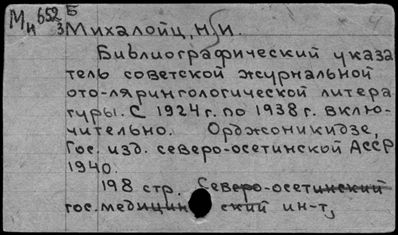 Мн 652 Б
3
Михалойц, Н. И.
Библиографический указа
тель советской журнальной
ото-лярингологической литера
туры. С 1924 г. по 1938 г. вклю-
чительно. Орджоникидзе,
Гос. изд. северо-осетинской АССР
1940.
198 стр. Северо-осетинский
гос. медицин ский ин-т,